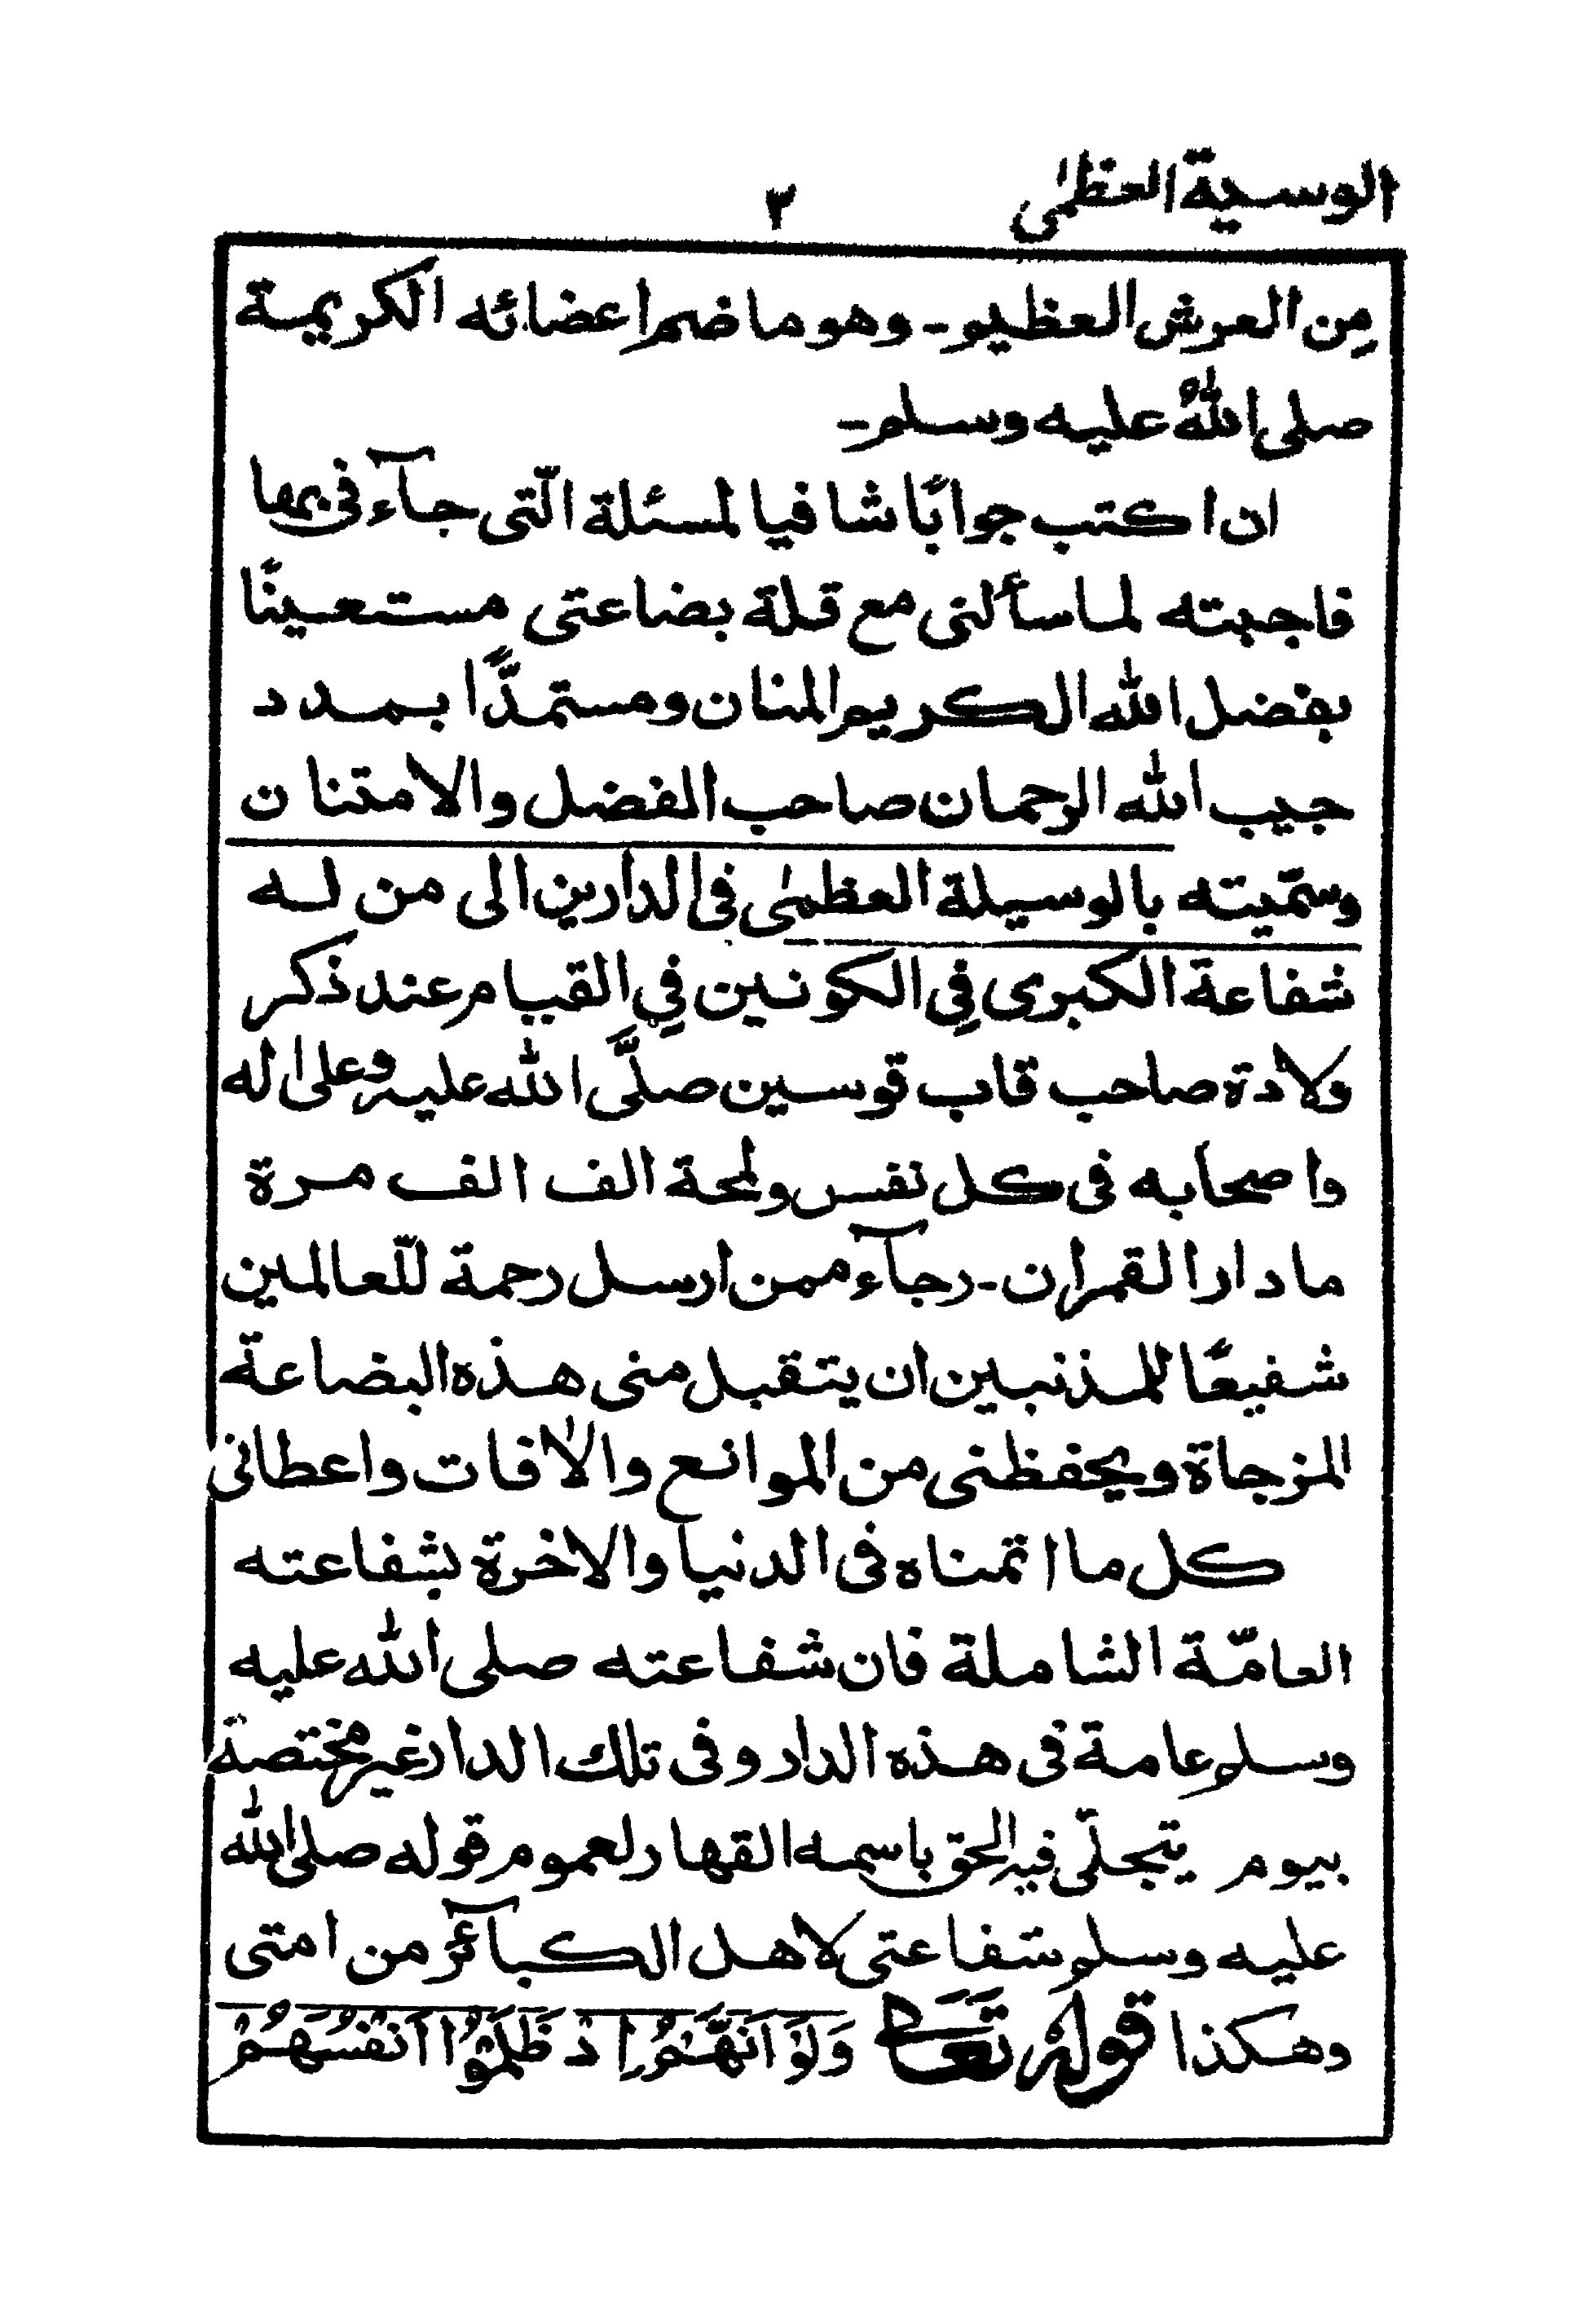 الوسية العظمٰی
٣
مِن العرش العظيم ـ وهو ما ضم اعضائه الكريمة
صلى اللهُ عليه وسلم ـ
ان اكتب جوابًا شافيا لمسئلة الّتى جآء فى بها
فاجبته لما سألنى مع قلة بضاعتى مستعينًا
بفضل الله الكريم المنان ومستمدًّا بمدد
حبيب الله الرحمان صاحب الفضل والامتنان
وسمّيته بالوسيلة العظمٰى فى الدارين الى من له
شفاعة الكبرى فِي الكونين فِي القيام عند ذكر
ولادة صاحب قاب قوسين صلَّى الله عليه وعلى اٰله
واصحابه فى كل نفس ولمحة الف الف مرة
ما دار القمران ـ رجآء ممن ارسل رحمة للّعالمين
شفيعًا للمذنبين ان يتقبل منى هذه البضاعة
المزجاة ويحفظنى من الموانع والاٰفات واعطانى
كل ما اتمناه فى الدنيا والاخرة بشفاعته
العامّة الشاملة فان شفاعته صلى الله عليه
وسلم عامة فى هذه الدار وفى تلك الدار غير مختصة
بيوم يتجلّى فيه الحق باسمه القهار لعموم قوله صلى الله
عليه وسلم شفاعتى لاهل الكبآئر من امتى
وهكذا قوله تعالىٰ وَلَوْ اَنَّهُمْ اِذْ ظَلَمُوْا اَنْفُسَهُمْ